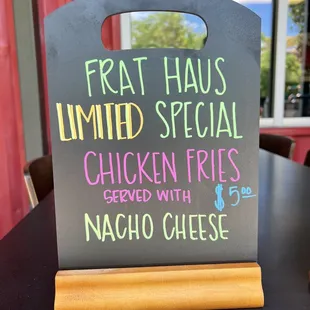 FRAT HAUS
LIMITED SPECIAL
CHICKEN FRIES
SERVED WITH $5.00
NACHO CHEESE